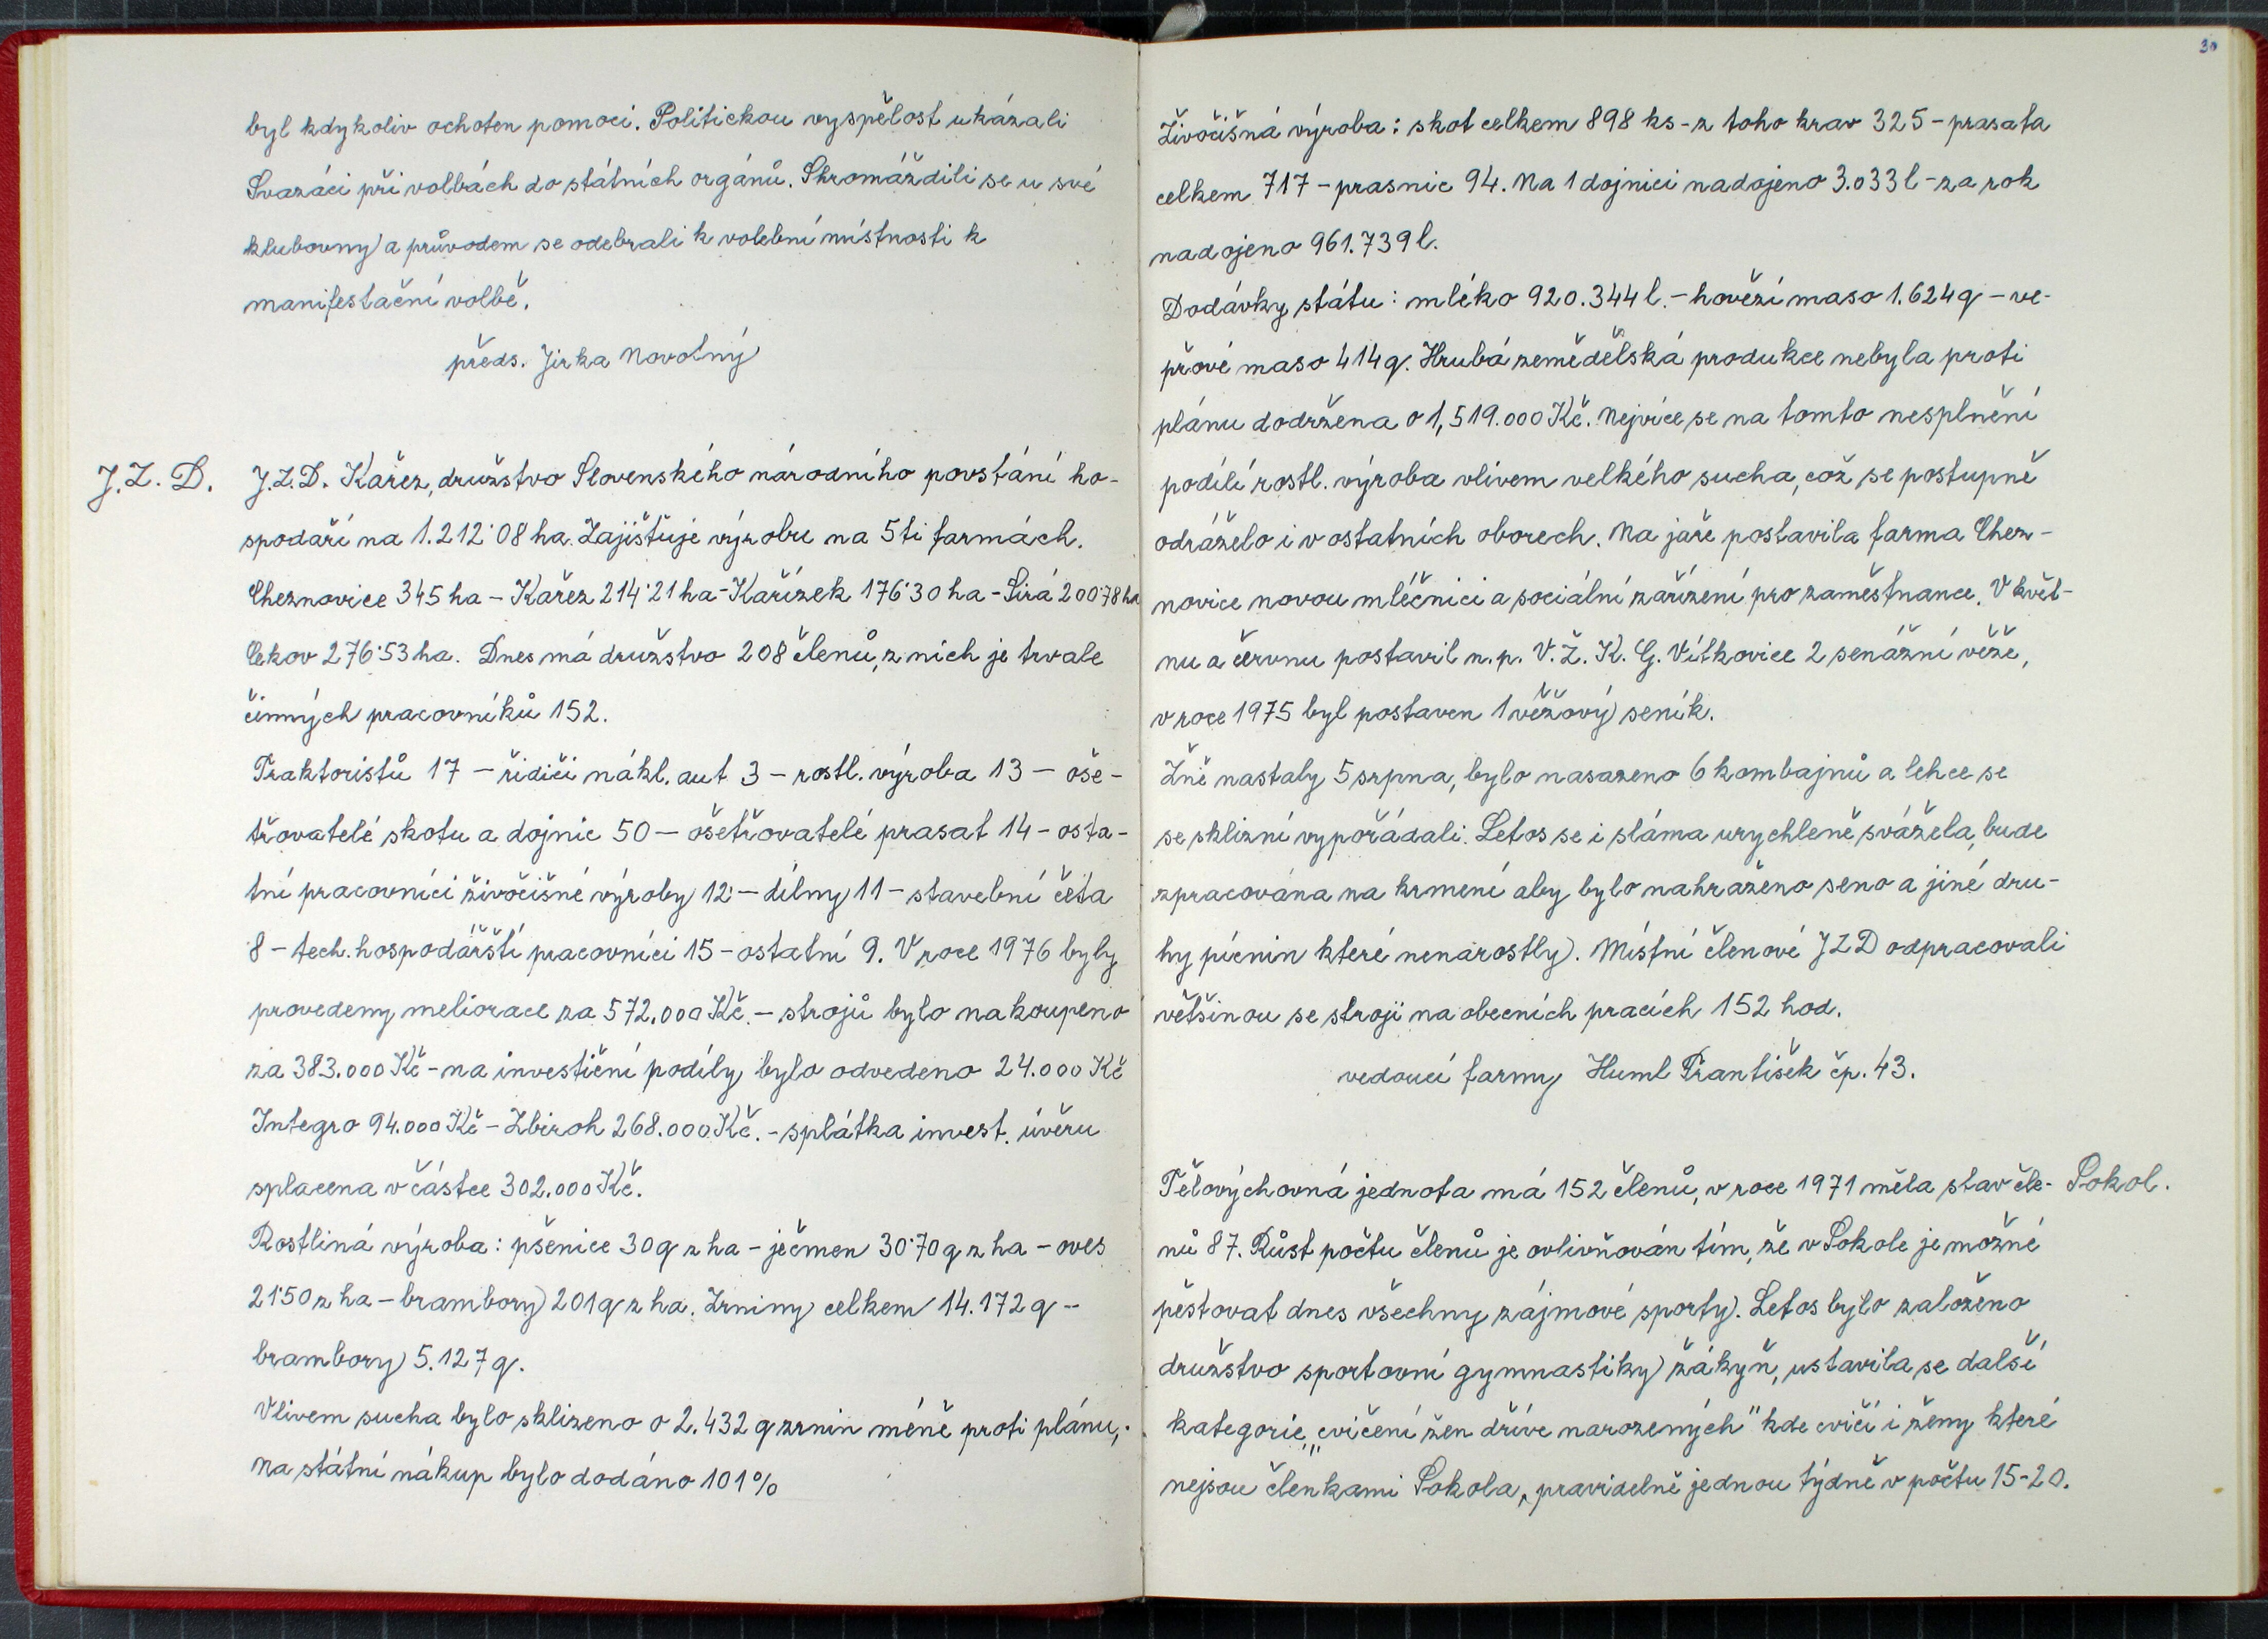 byl kdykoliv ochoten pomoci. Politickou vyspělost ukázali
Svazáci při volbách do státních orgánů. Shromáždili se u své
klubovny a průvodem se odebrali k volební místnosti k
manifestační volbě.
předs. Jirka Novotný
J.Z.D.
J.Z.D. Kařez, družstvo Slovenského národního povstání ho-
spodaří na 1.212˙08 ha. Zajišťuje výrobu na 5ti farmách.
Cheznovice 345 ha - Kařez 214˙21 ha - Kařízek 176˙30 ha - Sirá 200˙78 ha
Cekov 276˙53 ha. Dnes má družstvo 208 členů, z nich je trvale
činných pracovníků 152.
Traktoristů 17 - řidiči nákl. aut 3 - rostl. výroba 13 - oše-
třovatelé skotu a dojnic 50 - ošetřovatelé prasat 14 - osta-
tní pracovníci živočišné výroby 12 - dílny 11 - stavební četa
8 - tech. hospodářští pracovníci 15 - ostatní 9. V roce 1976 byly
provedeny meliorace za 572.000 Kč. - strojů bylo nakoupeno
za 383.000 Kč - na investiční podíly bylo odvedeno 24.000 Kč
Integro 94.000 Kč - Zbiroh 268.000 Kč. - splátka invest. úvěru
splacena v částce 302.000 Kč.
Rostliná výroba: pšenice 30 q z ha - ječmen 30˙70 q z ha - oves
21˙50 z ha - brambory 201 q z ha. Zrniny celkem 14.172 q -
brambory 5.127 q.
Vlivem sucha bylo sklizeno o 2.432 q zrnin méně proti plánu,
na státní nákup bylo dodáno 101%
30
Živočišná výroba: skot celkem 898 ks - z toho krav 325 - prasata
celkem 717 - prasnic 94. Na 1 dojnici nadojeno 3.033 l - za rok
nadojeno 961.739 l.
Dodávky státu: mléko 920.344 l. - hovězí maso 1.624 q - ve-
přové maso 414 q. Hrubá zemědělská produkce nebyla proti
plánu dodržena o 1,519.000 Kč. Nejvíce se na tomto nesplnění
podílí rostl. výroba vlivem velkého sucha, což se postupně
odráželo i v ostatních oborech. Na jaře postavila farma Chez-
novice novou mléčnici a sociální zařízení pro zaměstnance. V květ-
nu a červnu postavil n.p. V.Ž.K.G. Vítkovice 2 senážní věže,
v roce 1975 byl postaven 1 věžový seník.
Žně nastaly 5 srpna, bylo nasazeno 6 kombajnů a lehce se
se sklizní vypořádali. Letos se i sláma urychleně svážela, bude
zpracována na krmení aby bylo nahraženo seno a jiné dru-
hy pícnin které nenarostly. Místní členové JZD odpracovali
většinou se stroji na obecních pracích 152 hod.
vedoucí farmy Huml František čp. 43.
Sokol.
Tělovýchovná jednota má 152 členů, v roce 1971 měla stav čle-
nů 87. Růst počtu členů je ovlivňován tím, že v Sokole je možné
pěstovat dnes všechny zájmové sporty. Letos bylo založeno
družstvo sportovní gymnastiky žákyň, ustavila se další
kategorie „cvičení žen dříve narozených" kde cvičí i ženy které
nejsou členkami Sokola, pravidelně jednou týdně v počtu 15-20.